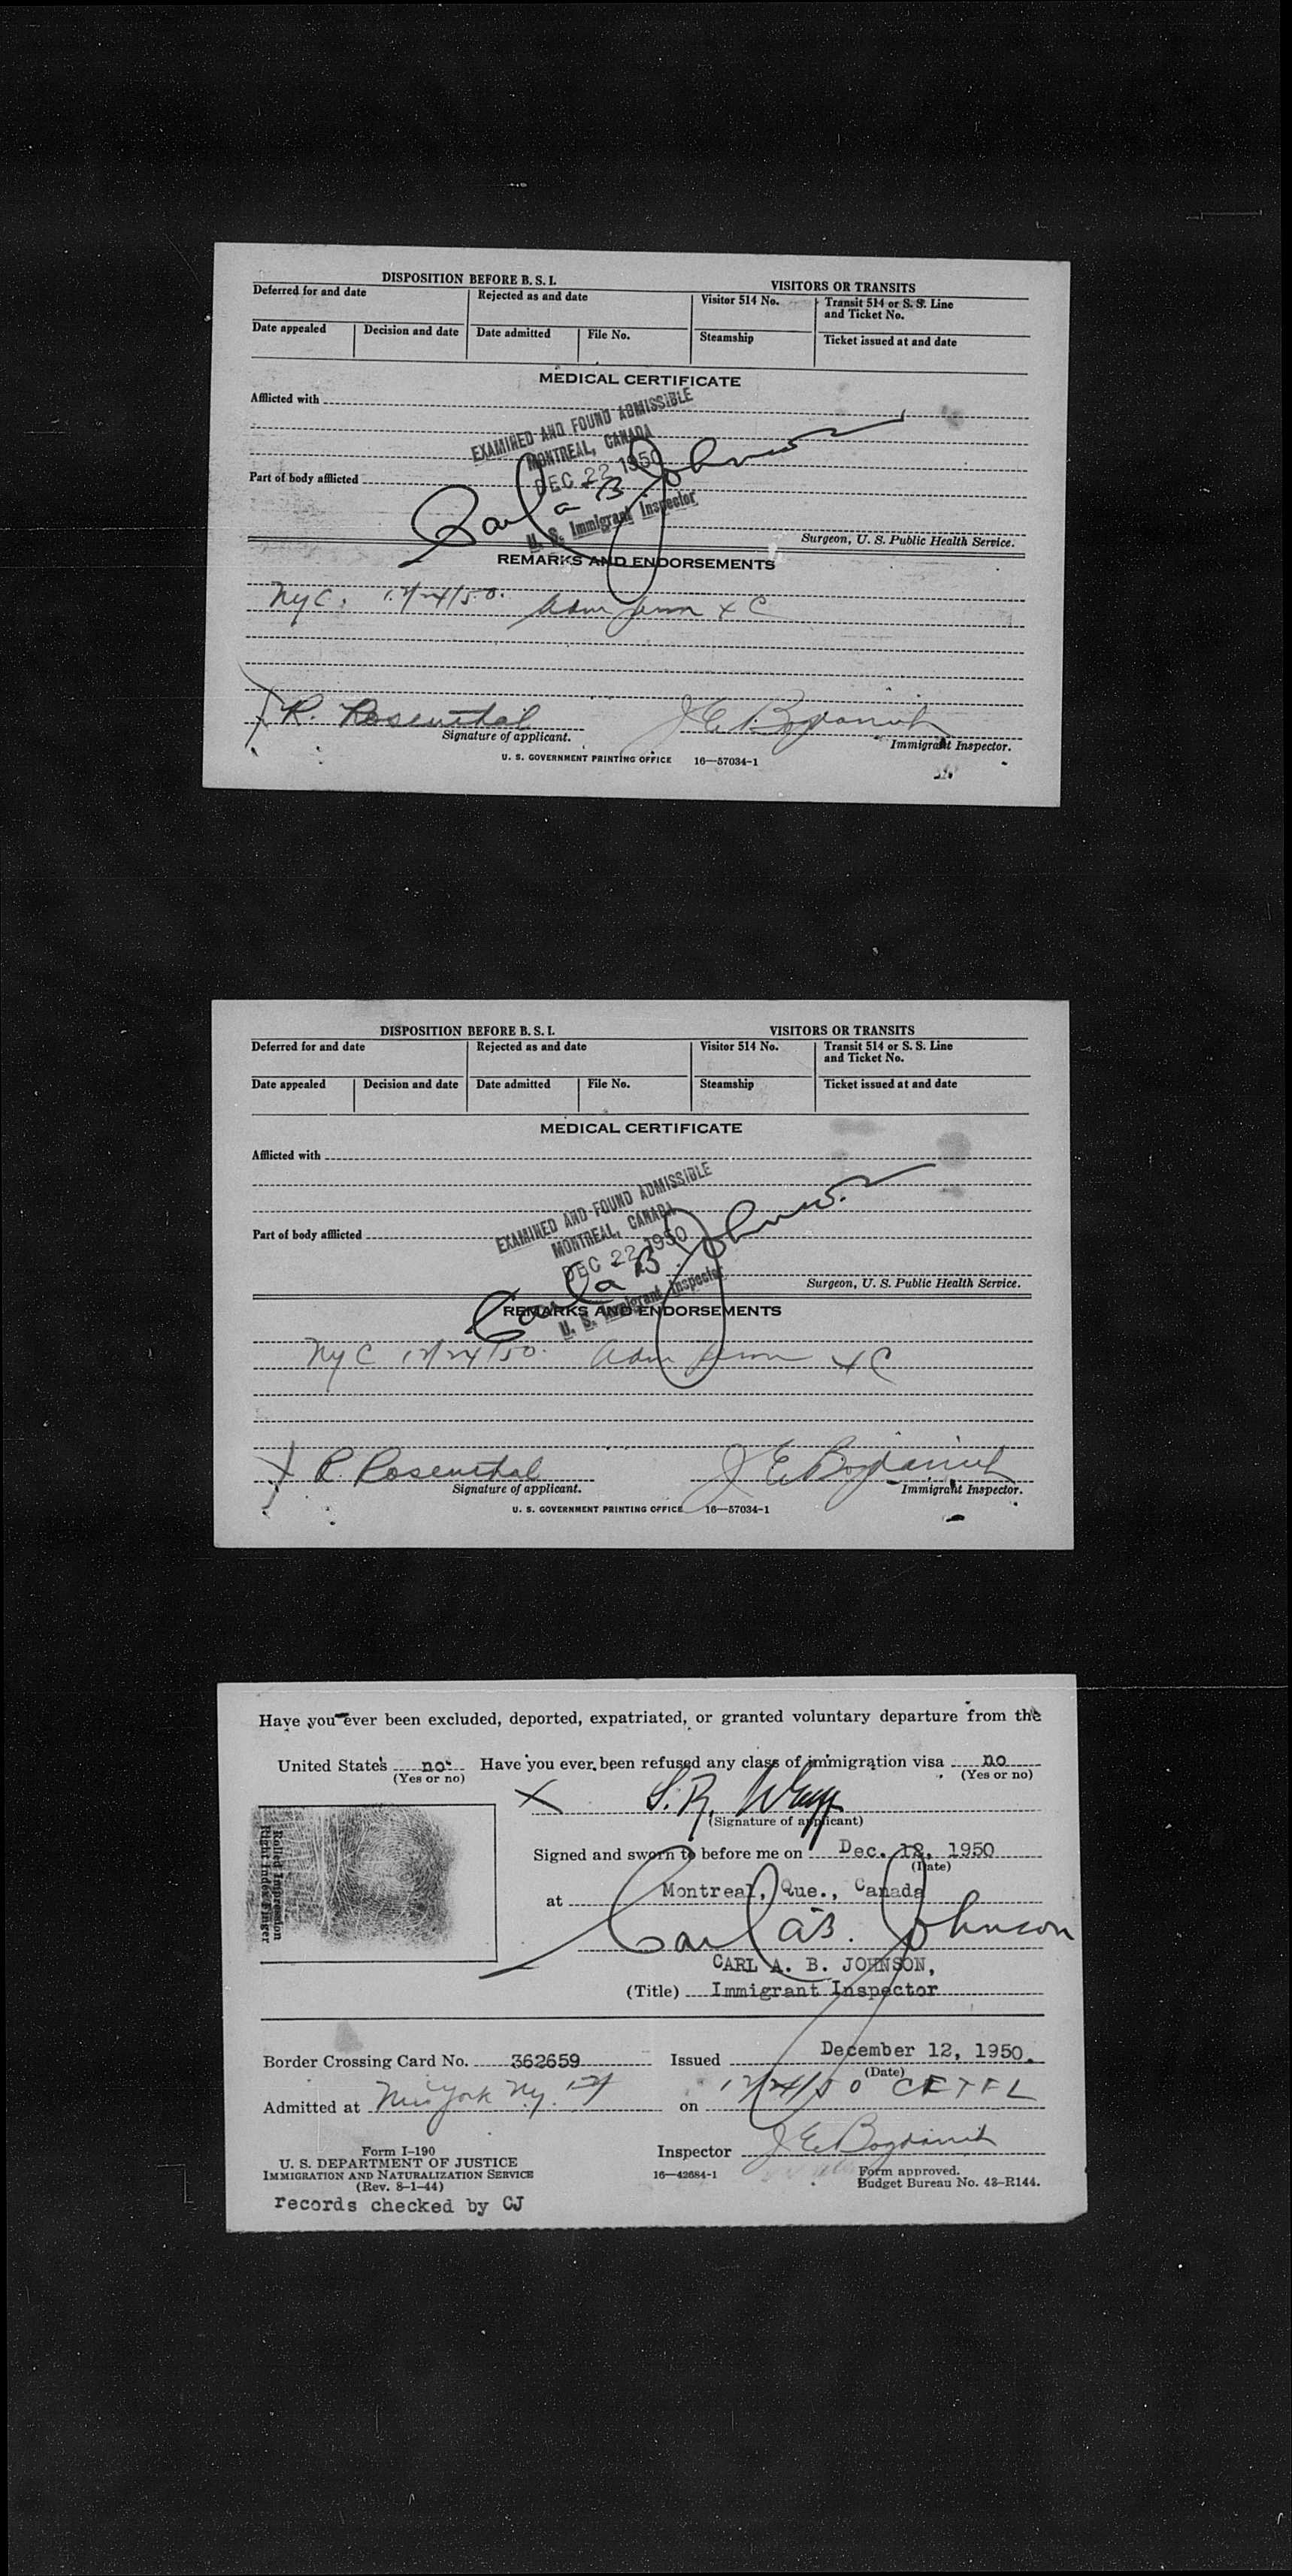 DISPOSITION BEFORE B. S. I. VISITORS OR TRANSITS
Deferred for and date Rejected as and date Visitor 514 No. Transit 514 or S. S. Line
and Ticket No.
Date appealed Decision and date Date admitted File No. Steamship Ticket issued at and date
MEDICAL CERTIFICATE
Afflicted with
EXAMINED AND FOUND ADMISSIBLE
MONTREAL, CANADA
DEC 22 1950
Part of body afflicted
Carl a B Johnson
U. S. Immigrant Inspector
Surgeon, U. S. Public Health Service.
REMARKS AND ENDORSEMENTS
NYC. 12/24/50. Adm perm x C
X R. Rosenthal
Signature of applicant. Immigrant Inspector.
U. S. GOVERNMENT PRINTING OFFICE 16—57034-1
DISPOSITION BEFORE B. S. I. VISITORS OR TRANSITS
Deferred for and date Rejected as and date Visitor 514 No. Transit 514 or S. S. Line
and Ticket No.
Date appealed Decision and date Date admitted File No. Steamship Ticket issued at and date
MEDICAL CERTIFICATE
Afflicted with
EXAMINED AND FOUND ADMISSIBLE
MONTREAL, CANADA
Part of body afflicted
DEC 22 1950
Carl a B. Johnson
U. S. Immigrant Inspector
Surgeon, U. S. Public Health Service.
REMARKS AND ENDORSEMENTS
NYC 12/24/50. Adm perm x C
X R. Rosenthal
Signature of applicant. Immigrant Inspector.
U. S. GOVERNMENT PRINTING OFFICE 16—57034-1
Have you ever been excluded, deported, expatriated, or granted voluntary departure from the
United States no Have you ever been refused any class of immigration visa no
(Yes or no) (Yes or no)
X S. R.
(Signature of applicant)
Rolled Impression
Right Index Finger
Signed and sworn to before me on Dec. 12, 1950
(Date)
at Montreal, Que., Canada
Carl a B. Johnson
CARL A. B. JOHNSON,
(Title) Immigrant Inspector
Border Crossing Card No. 362659 Issued December 12, 1950.
(Date)
Admitted at New York NY. on 12/24/50
Form I-190
U. S. DEPARTMENT OF JUSTICE
IMMIGRATION AND NATURALIZATION SERVICE
(Rev. 8-1-44)
Inspector
16—42684-1 Form approved.
Budget Bureau No. 43-R144.
records checked by CJ